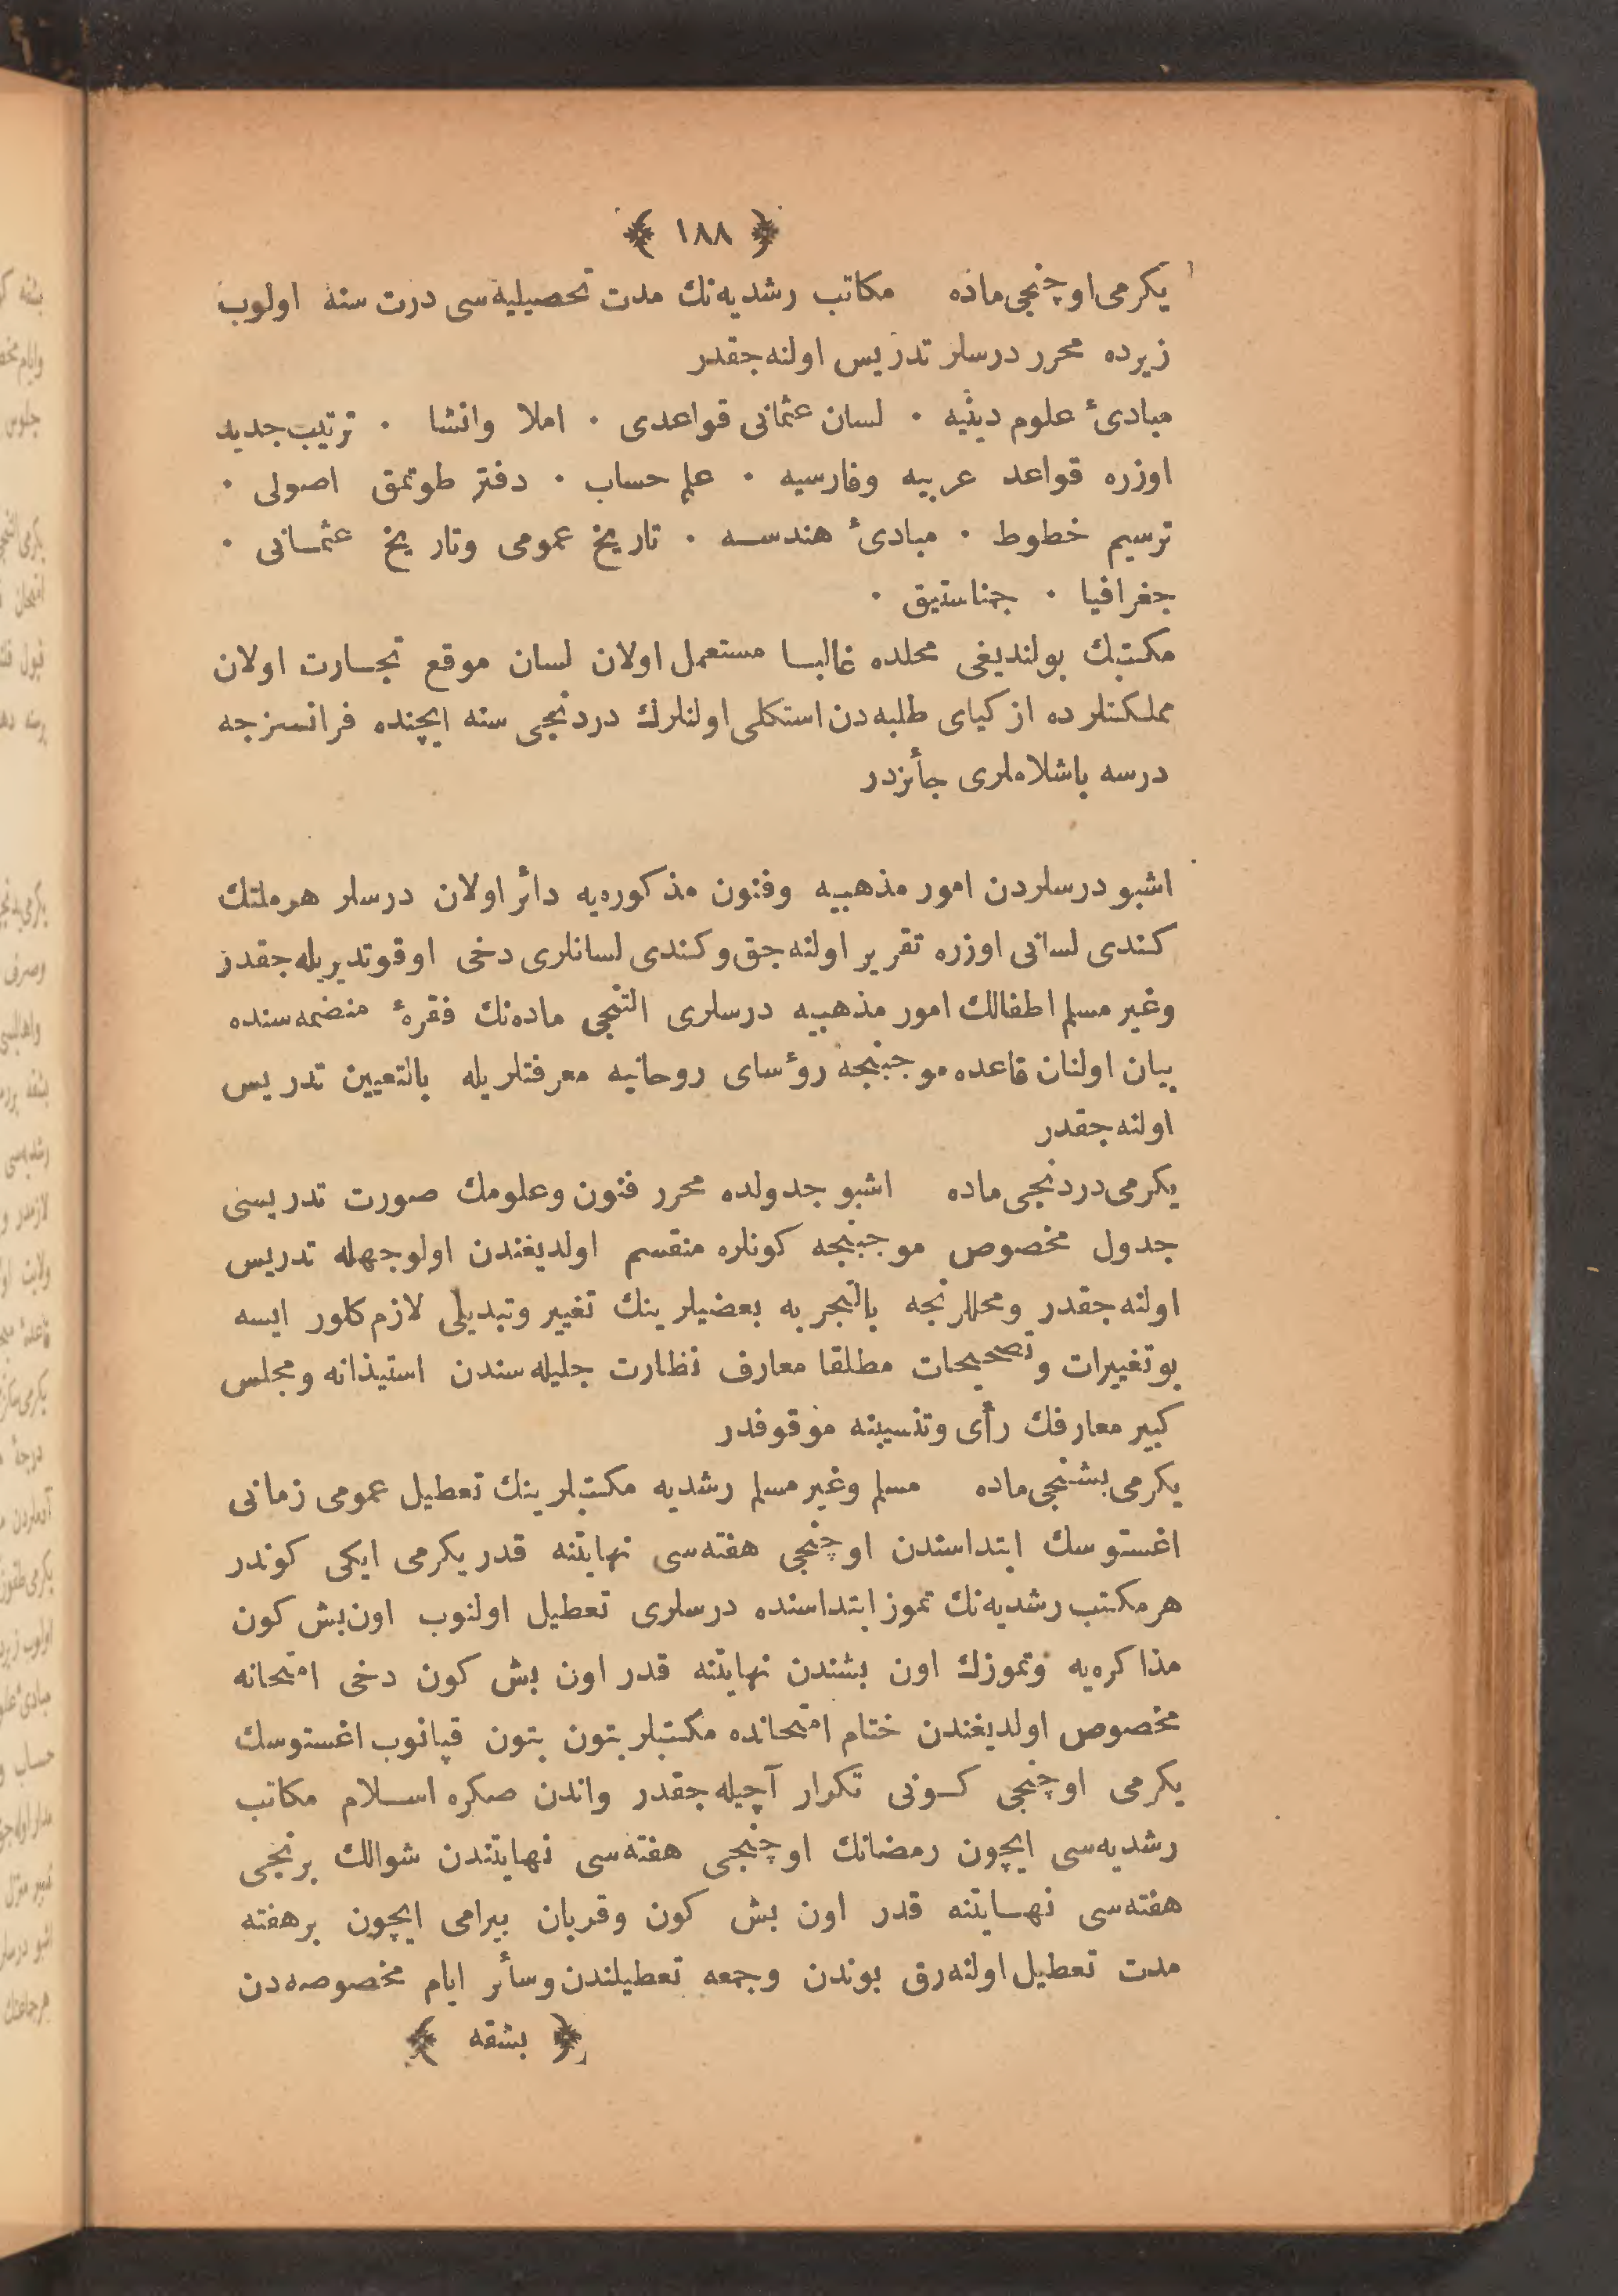 ﴿ ١٨٨ ﴾
یکرمی اوچنجی ماده مکاتب رشدیه‌نك مدت تحصیلیه‌سی درت سنه اولوب
زیرده محرر درسلر تدریس اولنه‌جقدر
مبادیٔ علوم دینیه ٠ لسان عثمانی قواعدی ٠ املا وانشا ٠ ترتیب جدید
اوزره قواعد عربیه وفارسیه ٠ علم حساب ٠ دفتر طوتمق اصولی ٠
ترسیم خطوط ٠ مبادیٔ هندسه ٠ تاریخ عمومی وتاریخ عثمانی ٠
جغرافیا ٠ جمناستیق ٠
مکتبك بولندیغی محلده غالبا مستعمل اولان لسان موقع تجارت اولان
مملکتلرده ازکیای طلبه‌دن استکلی اولنلرك دردنجی سنه ایچنده فرانسزجه
درسه باشلاملری جائزدر
اشبو درسلردن امور مذهبیه وفنون مذکوره‌یه دائر اولان درسلر هرملتك
کندی لسانی اوزره تقریر اولنه‌جق وکندی لسانلری دخی اوقوتدیریله‌جقدر
وغیر مسلم اطفالك امور مذهبیه درسلری التنجی ماده‌نك فقرهٔ منضمه‌سنده
بیان اولنان قاعده موجبنجه رؤسای روحانیه معرفتلریله بالتعیین تدریس
اولنه‌جقدر
یکرمی دردنجی ماده اشبو جدولده محرر فنون وعلومك صورت تدریسی
جدول مخصوص موجبنجه کونلره منقسم اولدیغندن اولوجهله تدریس
اولنه‌جقدر ومحللرنجه بالتجربه بعضیلرینك تغییر وتبدیلی لازم کلور ایسه
بو تغییرات وتصحیحات مطلقا معارف نظارت جلیله‌سندن استیذانه ومجلس
کبیر معارفك رأی وتنسیبنه موقوفدر
یکرمی بشنجی ماده مسلم وغیر مسلم رشدیه مکتبلرینك تعطیل عمومی زمانی
اغستوسك ابتداسندن اوچنجی هفته‌سی نهایتنه قدر یکرمی ایکی کوندر
هر مکتب رشدیه‌نك تموز ابتداسنده درسلری تعطیل اولنوب اون بش کون
مذاکره‌یه وتموزك اون بشندن نهایتنه قدر اون بش کون دخی امتحانه
مخصوص اولدیغندن ختام امتحانده مکتبلر بتون بتون قپانوب اغستوسك
یکرمی اوچنجی کونی تکرار آچیله‌جقدر واندن صکره اسلام مکاتب
رشدیه‌سی ایچون رمضانك اوچنجی هفته‌سی نهایتندن شوالك برنجی
هفته‌سی نهایتنه قدر اون بش کون وقربان بیرامی ایچون برهفته
مدت تعطیل اولنه‌رق بوندن وجمعه تعطیلندن وسائر ایام مخصوصه‌دن
﴿ بشقه ﴾